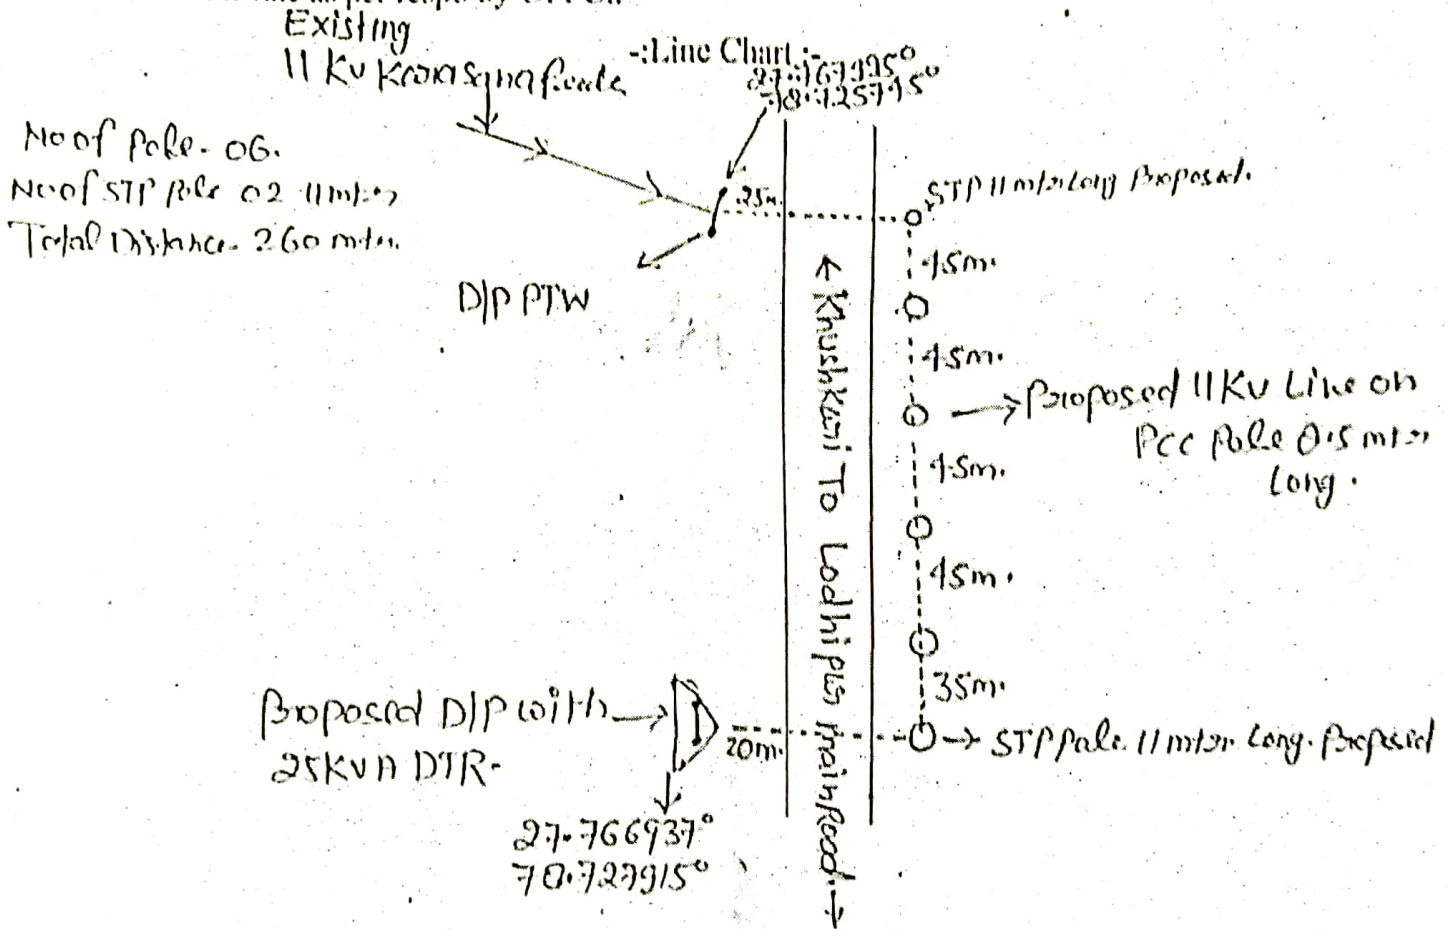 Existing
11 Kv
-:Line Chart:-
No of Pole- 06.
No of STP Pole 02 11 mtr
Total Distance- 260 mtr.
25m.
STP 11 mtr Long Proposed.
D/P PTW
45m.
45m.
→ Proposed 11Kv Line on
Pcc Pole 8.5 mtr
Long.
45m.
45m.
35m.
← Khushkari To Lodhipur main Road. →
Proposed D/P with
25KVA DTR.
20m.
→ STP Pole 11 mtr Long. Proposed
27.766937°
78.727915°